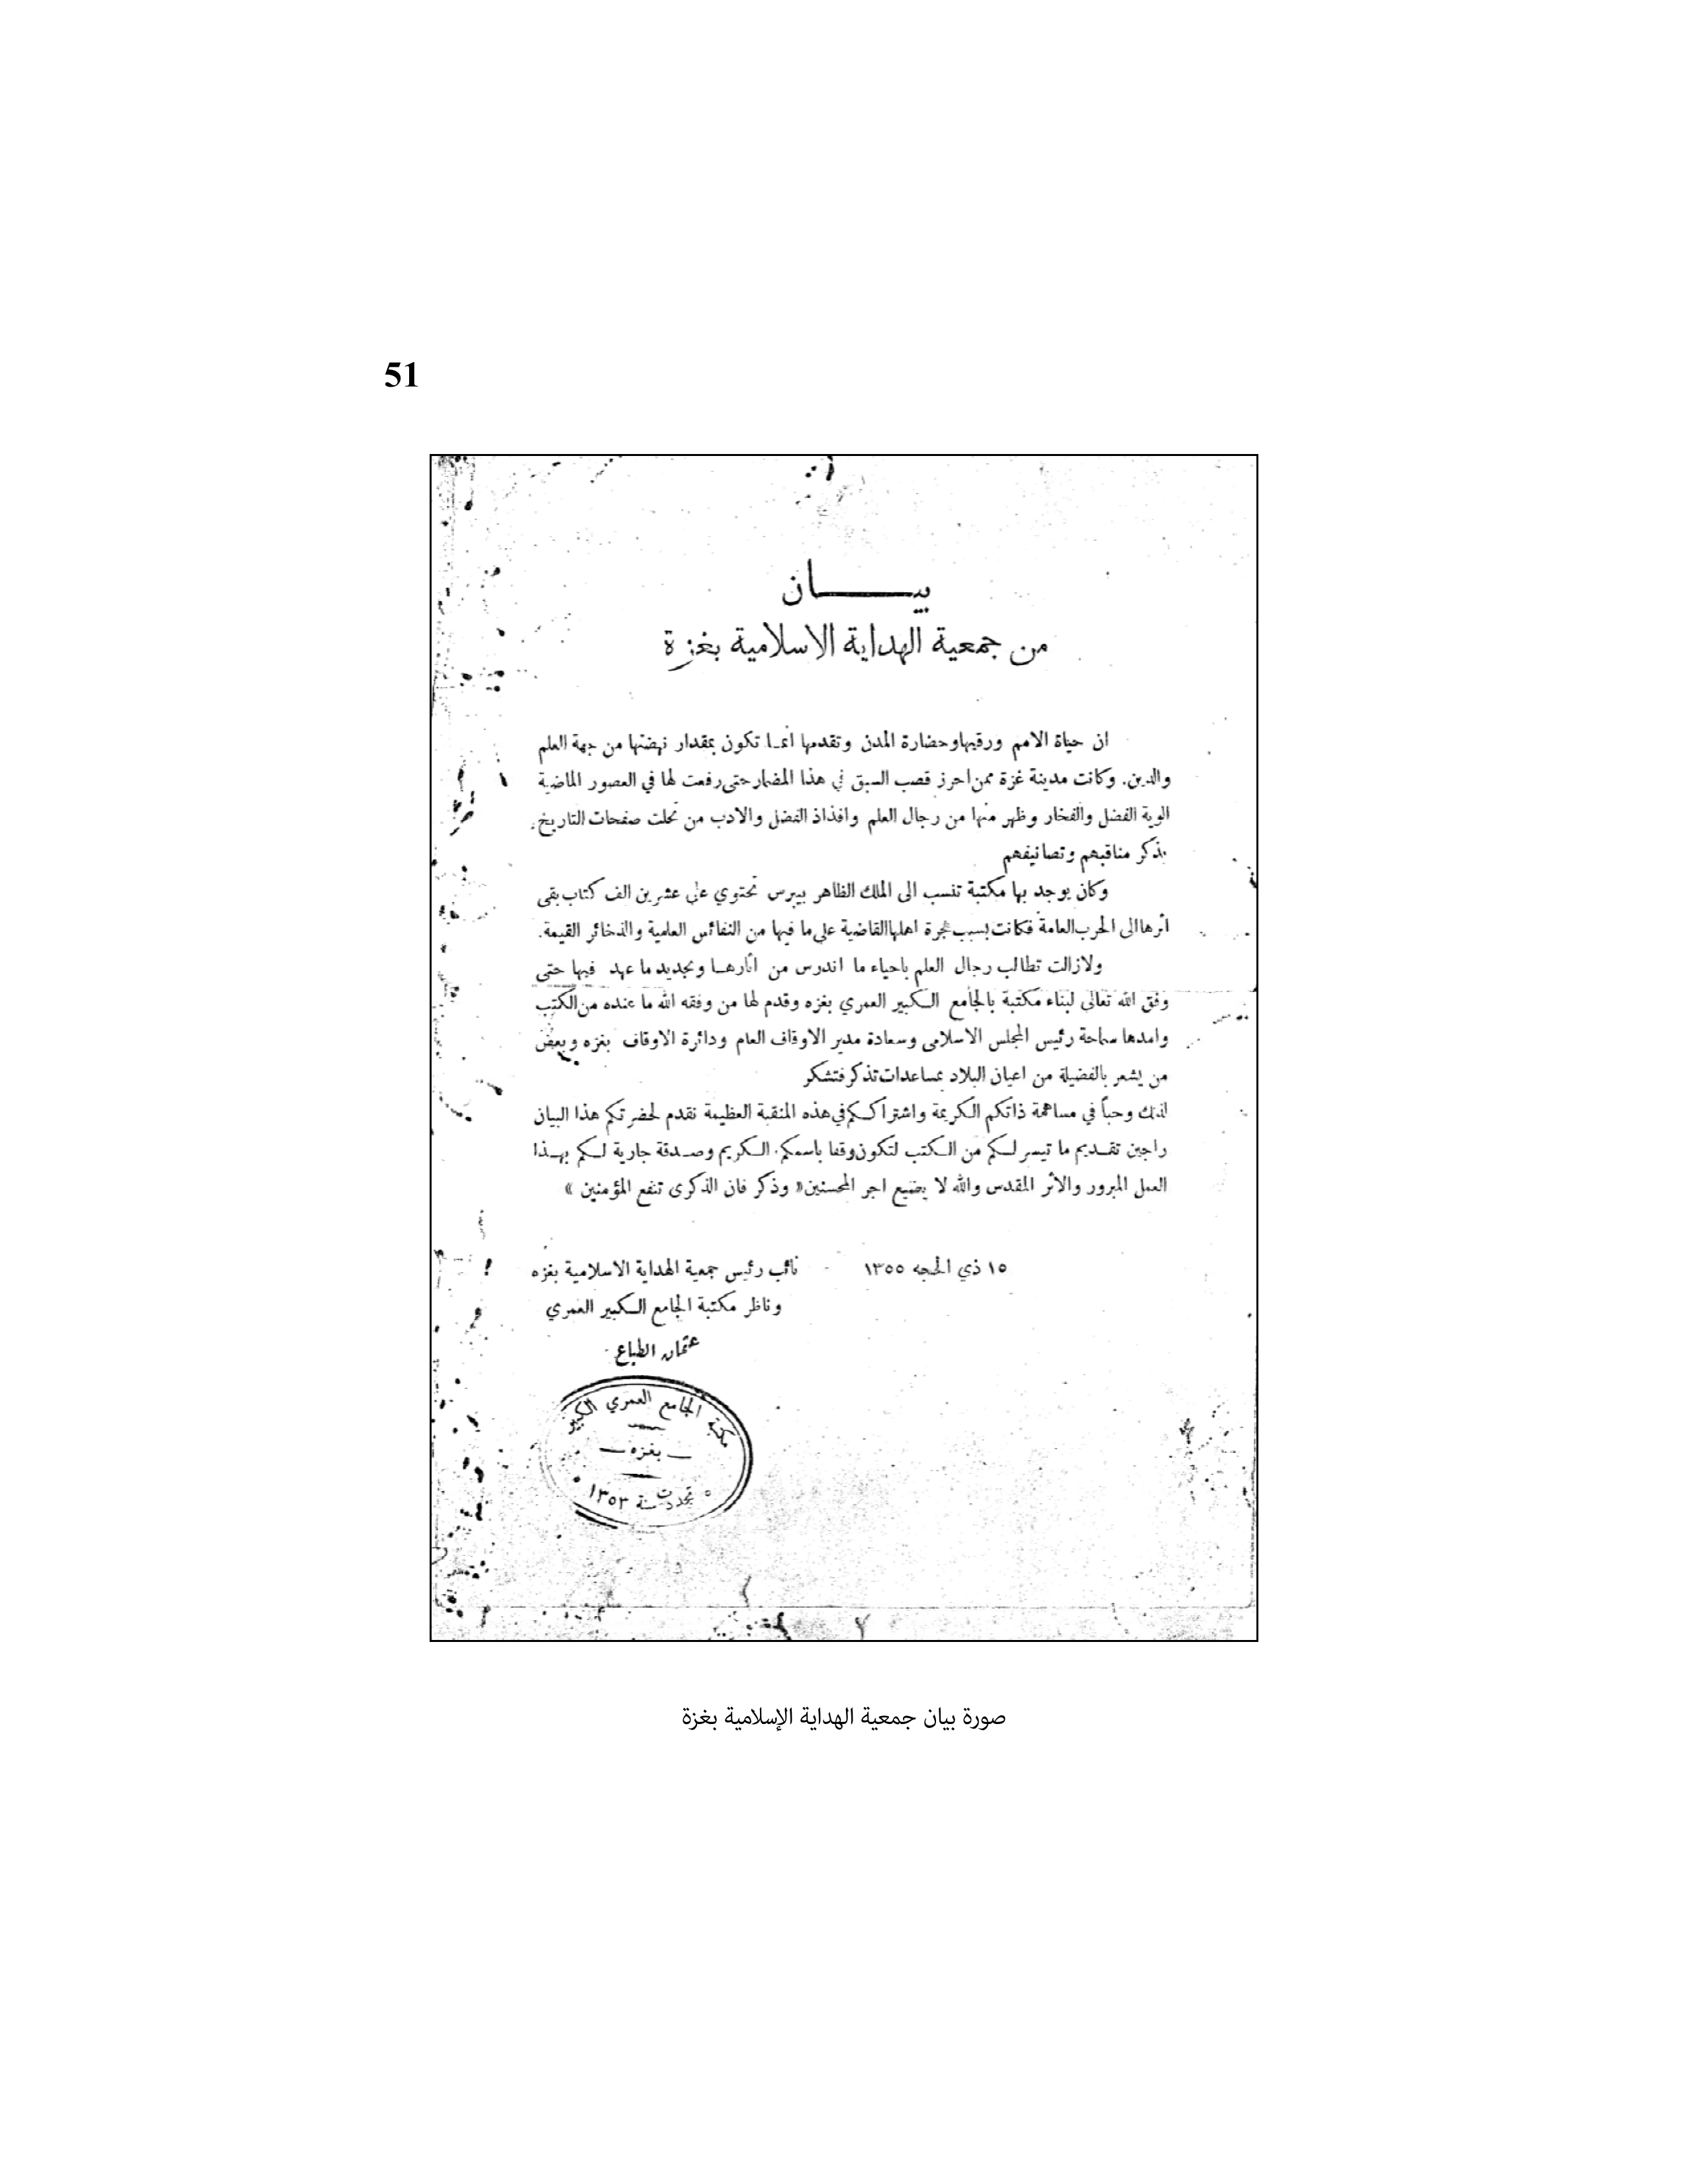 51
بيــــــان
من جمعية الهداية الاسلامية بغزة
ان حياة الامم ورقيها وحضارة المدن وتقدمها انمـا تكون بمقدار نهضتها من جهة العلم
والدين. وكانت مدينة غزة ممن احرز قصب السبق في هذا المضمار حتى رفعت لها في العصور الماضية
الوية الفضل والفخار وظهر منها من رجال العلم وافذاذ الفضل والادب من تحلت صفحات التاريخ
بذكر مناقبهم وتصانيفهم
وكان يوجد بها مكتبة تنسب الى الملك الظاهر بيبرس تحتوي على عشرين الف كتاب بقى
أثرها الى الحرب العامة فكانت بسبب هجرة اهلها القاضية على ما فيها من النفائس العلمية والذخائر القيمة.
ولازالت تطالب رجال العلم باحياء ما اندرس من آثارهـا وتجديد ما عهد فيها حتى
وفق الله تعالى لبناء مكتبة بالجامع الكبير العمري بغزه وقدم لها من وفقه الله ما عنده من الكتب
وامدها سماحة رئيس المجلس الاسلامى وسعادة مدير الاوقاف العام ودائرة الاوقاف بغزه وبعض
من يشعر بالفضيلة من اعيان البلاد بمساعدات تذكر فتشكر
لذلك وحباً في مساهمة ذاتكم الكريمة واشتراككم في هذه المنقبة العظيمة نقدم لحضرتكم هذا البيان
راجين تقـديم ما تيسر لكم من الكتب لتكون وقفا باسمكم الكريم وصـدقة جارية لكم بهـذا
العمل المبرور والاثر المقدس والله لا يضيع اجر المحسنين « وذكر فان الذكرى تنفع المؤمنين »
١٥ ذي الحجه ١٣٥٥ نائب رئيس جمعية الهداية الاسلامية بغزه
وناظر مكتبة الجامع الكبير العمري
عثمان الطباع
مكتبة الجامع العمري الكبير
بغزه
تجددت سنة ١٣٥٣
صورة بيان جمعية الهداية الإسلامية بغزة